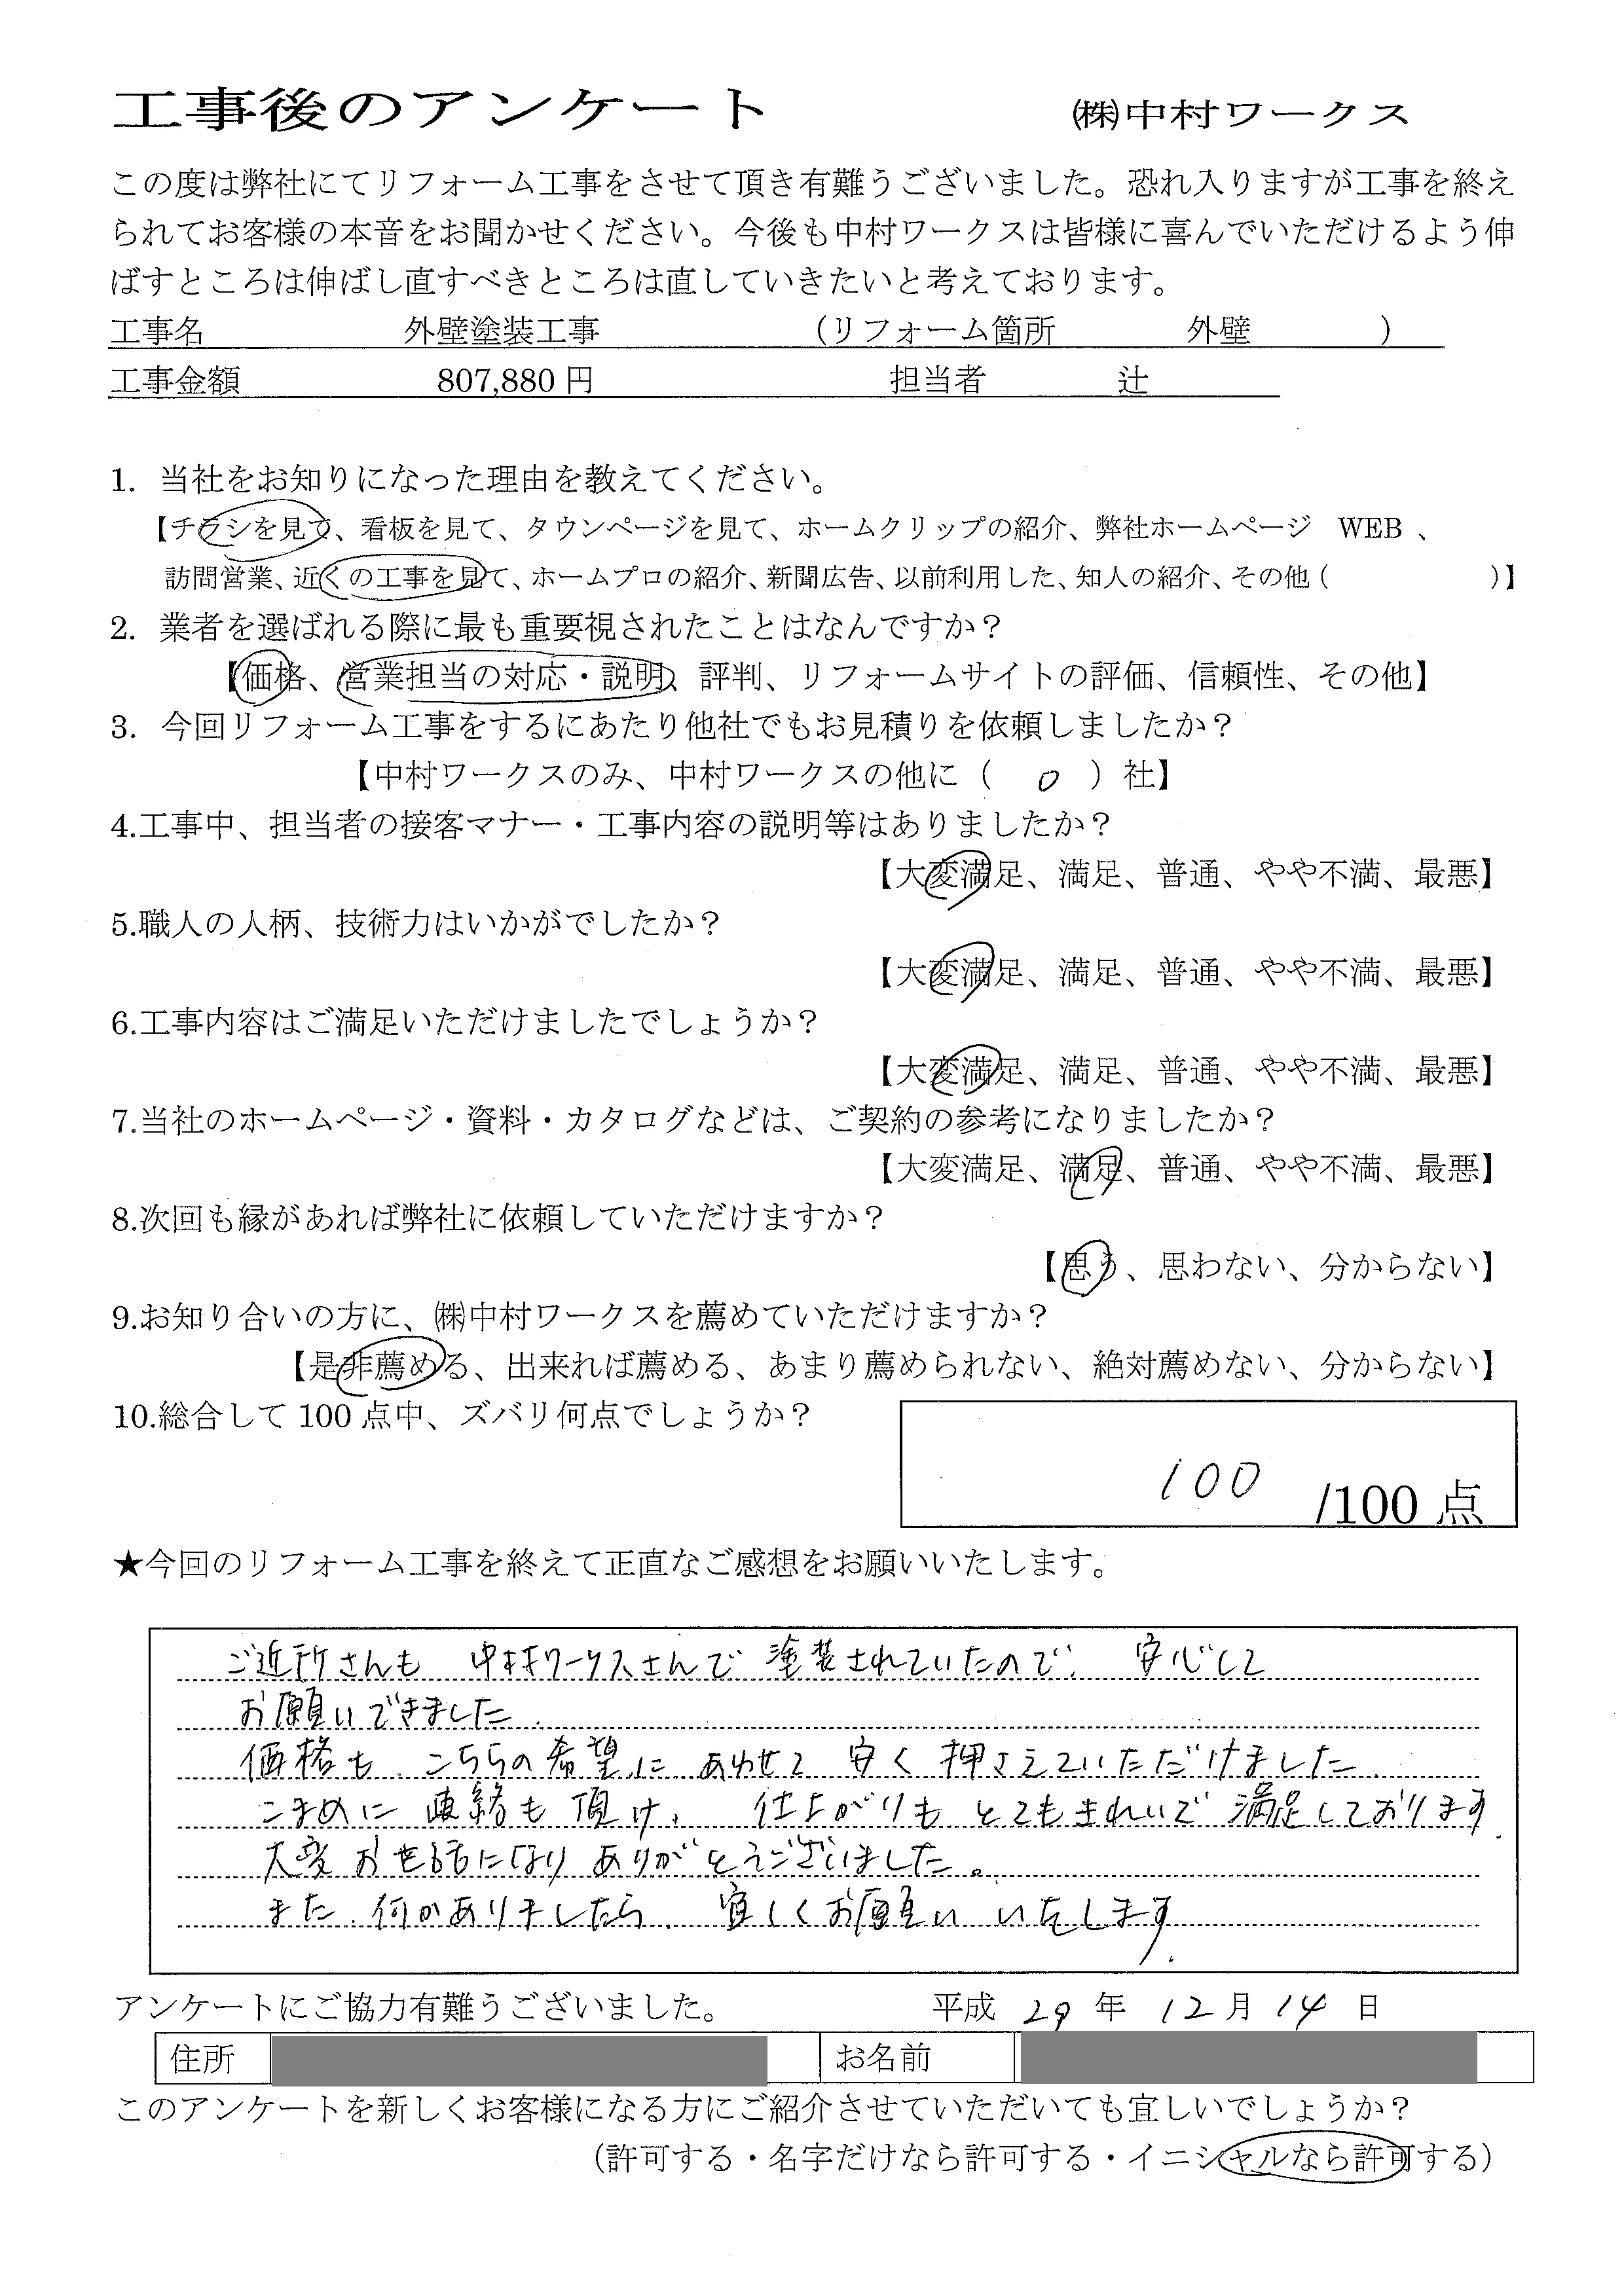 工事後のアンケート ㈱中村ワークス
この度は弊社にてリフォーム工事をさせて頂き有難うございました。恐れ入りますが工事を終え
られてお客様の本音をお聞かせください。今後も中村ワークスは皆様に喜んでいただけるよう伸
ばすところは伸ばし直すべきところは直していきたいと考えております。
工事名 外壁塗装工事 (リフォーム箇所 外壁 )
工事金額 807,880 円 担当者 辻
1. 当社をお知りになった理由を教えてください。
【チラシを見て、看板を見て、タウンページを見て、ホームクリップの紹介、弊社ホームページ WEB 、
訪問営業、近くの工事を見て、ホームプロの紹介、新聞広告、以前利用した、知人の紹介、その他 ( )】
2. 業者を選ばれる際に最も重要視されたことはなんですか？
【価格、営業担当の対応・説明、評判、リフォームサイトの評価、信頼性、その他】
3. 今回リフォーム工事をするにあたり他社でもお見積りを依頼しましたか？
【中村ワークスのみ、中村ワークスの他に ( 0 ) 社】
4.工事中、担当者の接客マナー・工事内容の説明等はありましたか？
【大変満足、満足、普通、やや不満、最悪】
5.職人の人柄、技術力はいかがでしたか？
【大変満足、満足、普通、やや不満、最悪】
6.工事内容はご満足いただけましたでしょうか？
【大変満足、満足、普通、やや不満、最悪】
7.当社のホームページ・資料・カタログなどは、ご契約の参考になりましたか？
【大変満足、満足、普通、やや不満、最悪】
8.次回も縁があれば弊社に依頼していただけますか？
【思う、思わない、分からない】
9.お知り合いの方に、㈱中村ワークスを薦めていただけますか？
【是非薦める、出来れば薦める、あまり薦められない、絶対薦めない、分からない】
10.総合して 100 点中、ズバリ何点でしょうか？
100 /100 点
★今回のリフォーム工事を終えて正直なご感想をお願いいたします。
ご近所さんも 中村ワークスさんで 塗装されていたので、 安心して
お願いできました.
価格も、こちらの希望に あわせて 安く 押さえていただけました.
こまめに 連絡も 頂け、 仕上がりも とてもきれいで 満足しております.
大変 お世話になり ありがとうございました。
また、何かありましたら、 宜しくお願い いたします.
アンケートにご協力有難うございました。 平成 29 年 12 月 14 日
住所 お名前
このアンケートを新しくお客様になる方にご紹介させていただいても宜しいでしょうか？
(許可する・名字だけなら許可する・イニシャルなら許可する)